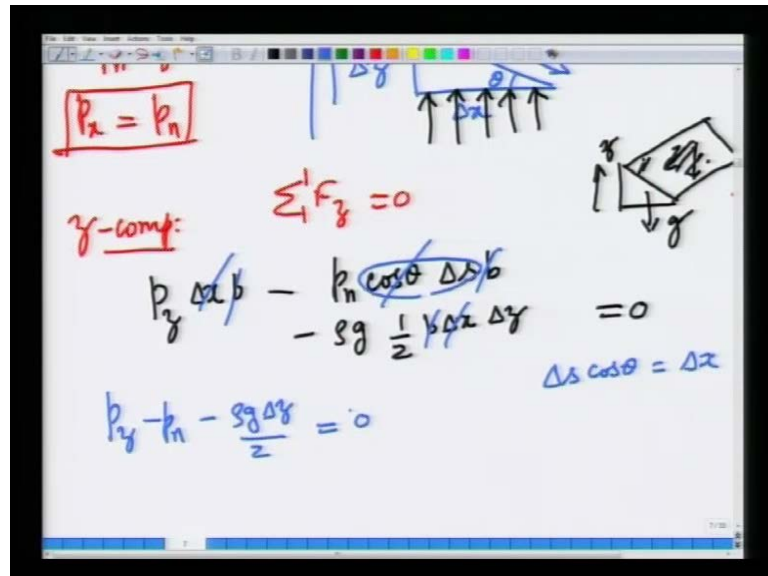 File Edit View Insert Actions Tools Help
Δy
θ
Δx
p_x = p_n
z
g
Σ F_z = 0
z-comp:
p_z Δx b − p_n cosθ Δs b
− ρg 1/2 b Δx Δz = 0
Δs cosθ = Δx
p_z − p_n − ρgΔz/2 = 0
7